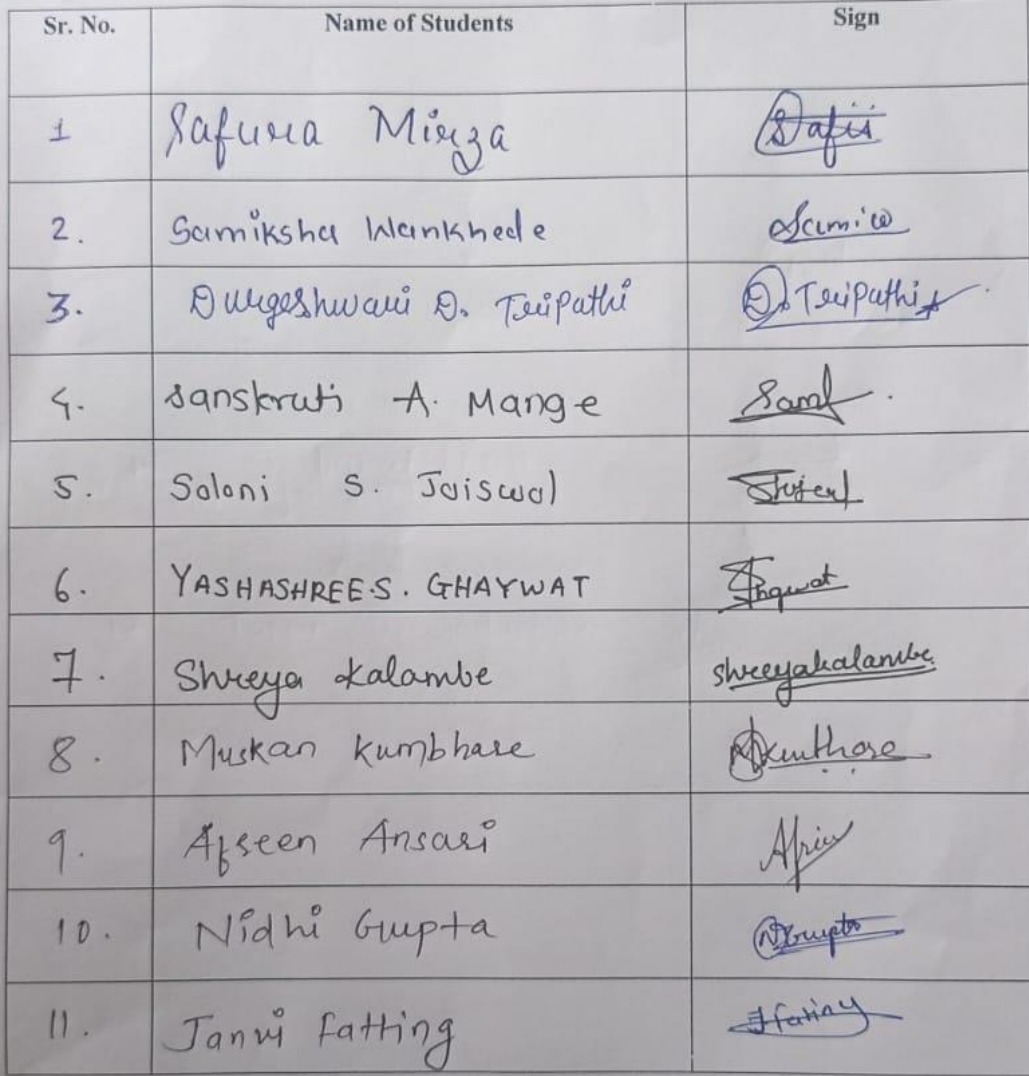 Sr. No. Name of Students Sign
1 Safura Mirza Safii
2. Samiksha Wankhede Samiw
3. Durgeshwari D. Tripathi D. Tripathi
4. Sanskruti A. Mange
5. Saloni S. Jaiswal
6. YASHASHREE.S. GHAYWAT
7. Shreya Kalambe shreyakalambe
8. Muskan Kumbhare
9. Afseen Ansari
10. Nidhi Gupta NGupta
11. Janvi Fatting